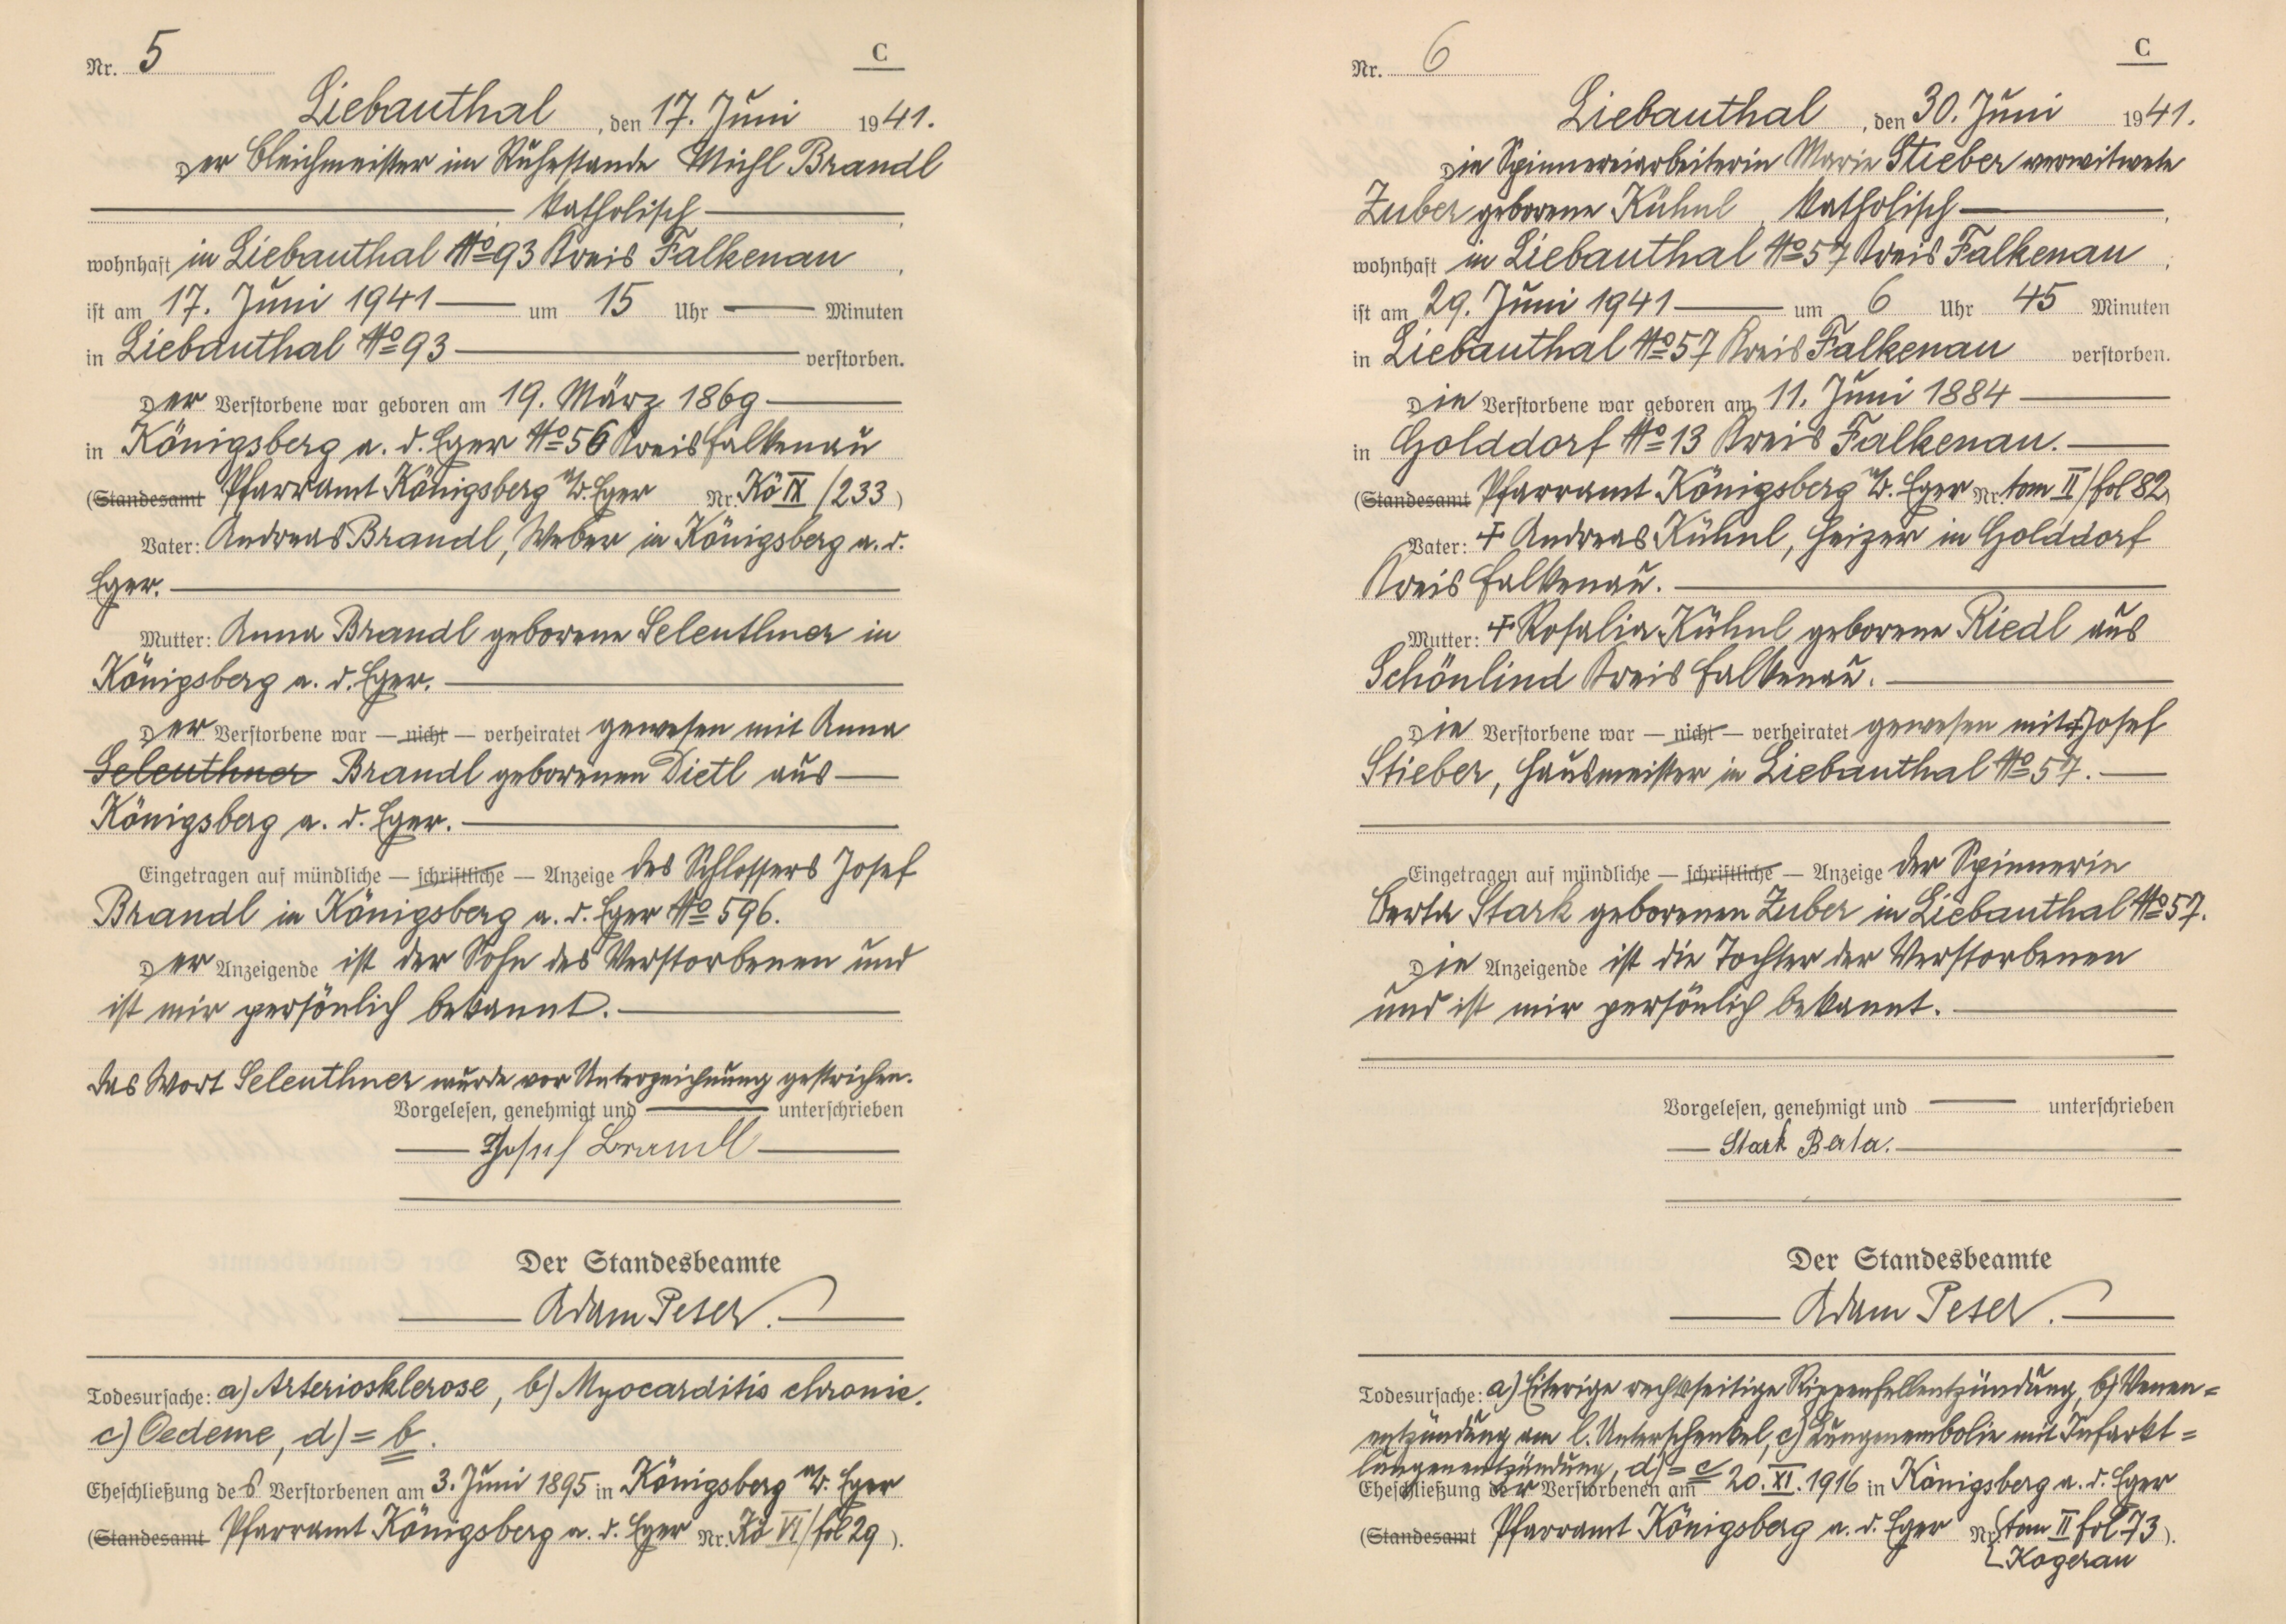 Nr. 5
C
Liebauthal, den 17. Juni 1941.
Der Bleichmeister im Ruhestande Michl Brandl
katholisch,
wohnhaft in Liebauthal No 93 Kreis Falkenau,
ist am 17. Juni 1941 um 15 Uhr Minuten
in Liebauthal No 93 verstorben.
Der Verstorbene war geboren am 19. März 1869
in Königsberg a. d. Eger No 56 Kreis Falkenau
(Standesamt Pfarramt Königsberg a/d. Eger Nr. Kö IX /233)
Vater: Andreas Brandl, Weber in Königsberg a. d.
Eger.
Mutter: Anna Brandl geborene Seleuthner in
Königsberg a. d. Eger.
Der Verstorbene war — nicht — verheiratet gewesen mit Anna
Seleuthner Brandl geborenen Dietl aus
Königsberg a. d. Eger.
Eingetragen auf mündliche — schriftliche — Anzeige des Schlossers Josef
Brandl in Königsberg a. d. Eger No 596.
Der Anzeigende ist der Sohn des Verstorbenen und
ist mir persönlich bekannt.
Das Wort Seleuthner wurde vor Unterzeichnung gestrichen.
Vorgelesen, genehmigt und unterschrieben
Josef Brandl
Der Standesbeamte
Adam Peter.
Todesursache: a) Arteriosklerose, b) Myocarditis chronic.
c) Oedeme, d) = b.
Eheschließung des Verstorbenen am 3. Juni 1895 in Königsberg a/d. Eger
(Standesamt Pfarramt Königsberg a. d. Eger Nr. Kö VI/fol 29).
Nr. 6
C
Liebauthal, den 30. Juni 1941.
Die Spinnereiarbeiterin Marie Stieber verwitwete
Zuber geborene Kühnl, katholisch,
wohnhaft in Liebauthal No 57 Kreis Falkenau,
ist am 29. Juni 1941 um 6 Uhr 45 Minuten
in Liebauthal No 57 Kreis Falkenau verstorben.
Die Verstorbene war geboren am 11. Juni 1884
in Golddorf No 13 Kreis Falkenau.
(Standesamt Pfarramt Königsberg a/d. Eger Nr. tom II/fol 82)
Vater: + Andreas Kühnl, Heizer in Golddorf
Kreis Falkenau.
Mutter: + Rosalia Kühnl geborene Riedl aus
Schönlind Kreis Falkenau.
Die Verstorbene war — nicht — verheiratet gewesen mit + Josef
Stieber, Hausmeister in Liebauthal No 57.
Eingetragen auf mündliche — schriftliche — Anzeige der Spinnerin
Berta Stark geborenen Zuber in Liebauthal No 57.
Die Anzeigende ist die Tochter der Verstorbenen
und ist mir persönlich bekannt.
Vorgelesen, genehmigt und unterschrieben
Stark Berta.
Der Standesbeamte
Adam Peter.
Todesursache: a) Eiterige rechtsseitige Rippenfellentzündung, b) Venen=
entzündung am l. Unterschenkel, c) Lungenembolie mit Infarkt=
lungenentzündung, d) = c
Eheschließung der Verstorbenen am 20. XI. 1916 in Königsberg a. d. Eger
(Standesamt Pfarramt Königsberg a. d. Eger Nr. tom II fol 73).
Kogerau